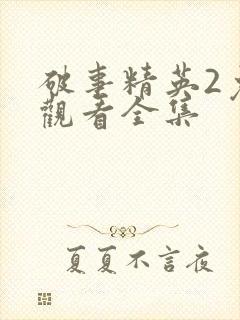 破事精英2
觀看全集
夏夏不言夜